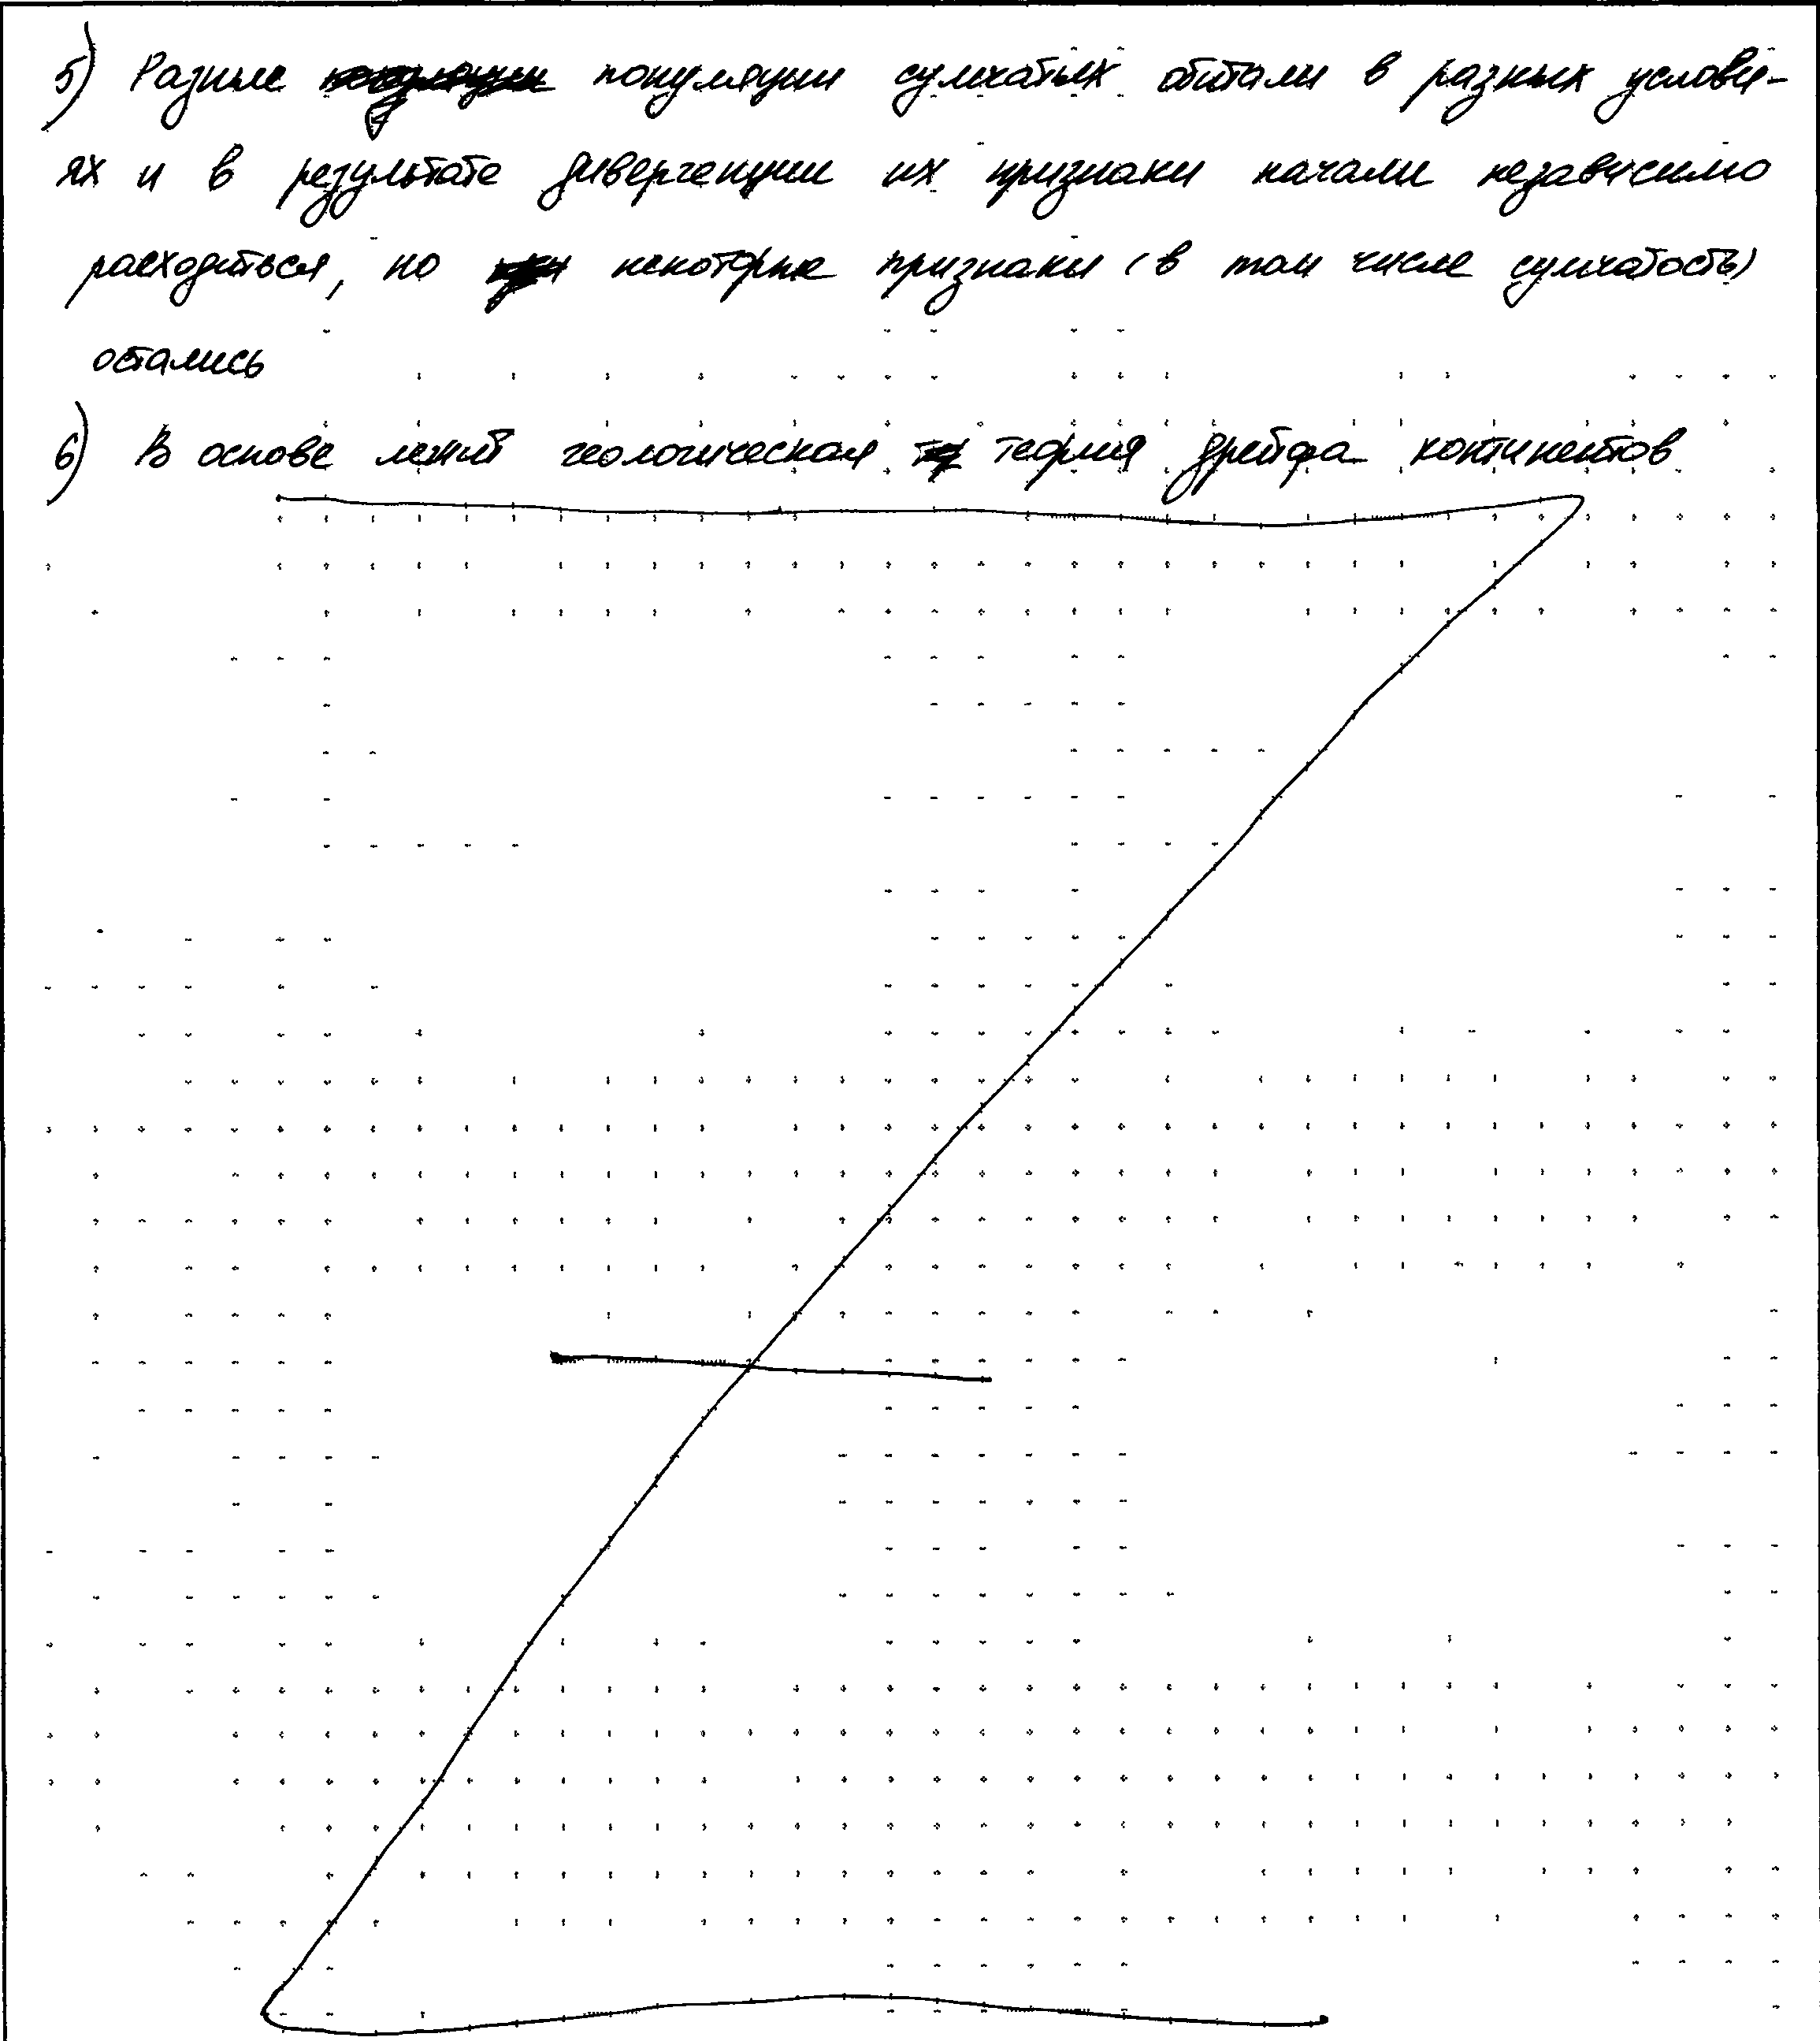 5) Разные популяции сумчатых обитали в разных услови-
ях и в результате дивергенции их признаки начали независимо
расходиться, но некоторые признаки (в том числе сумчатость)
остались
6) В основе лежит геологическая теория дрейфа континентов